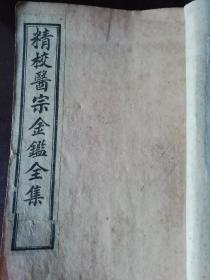 精校醫宗金鑑全集